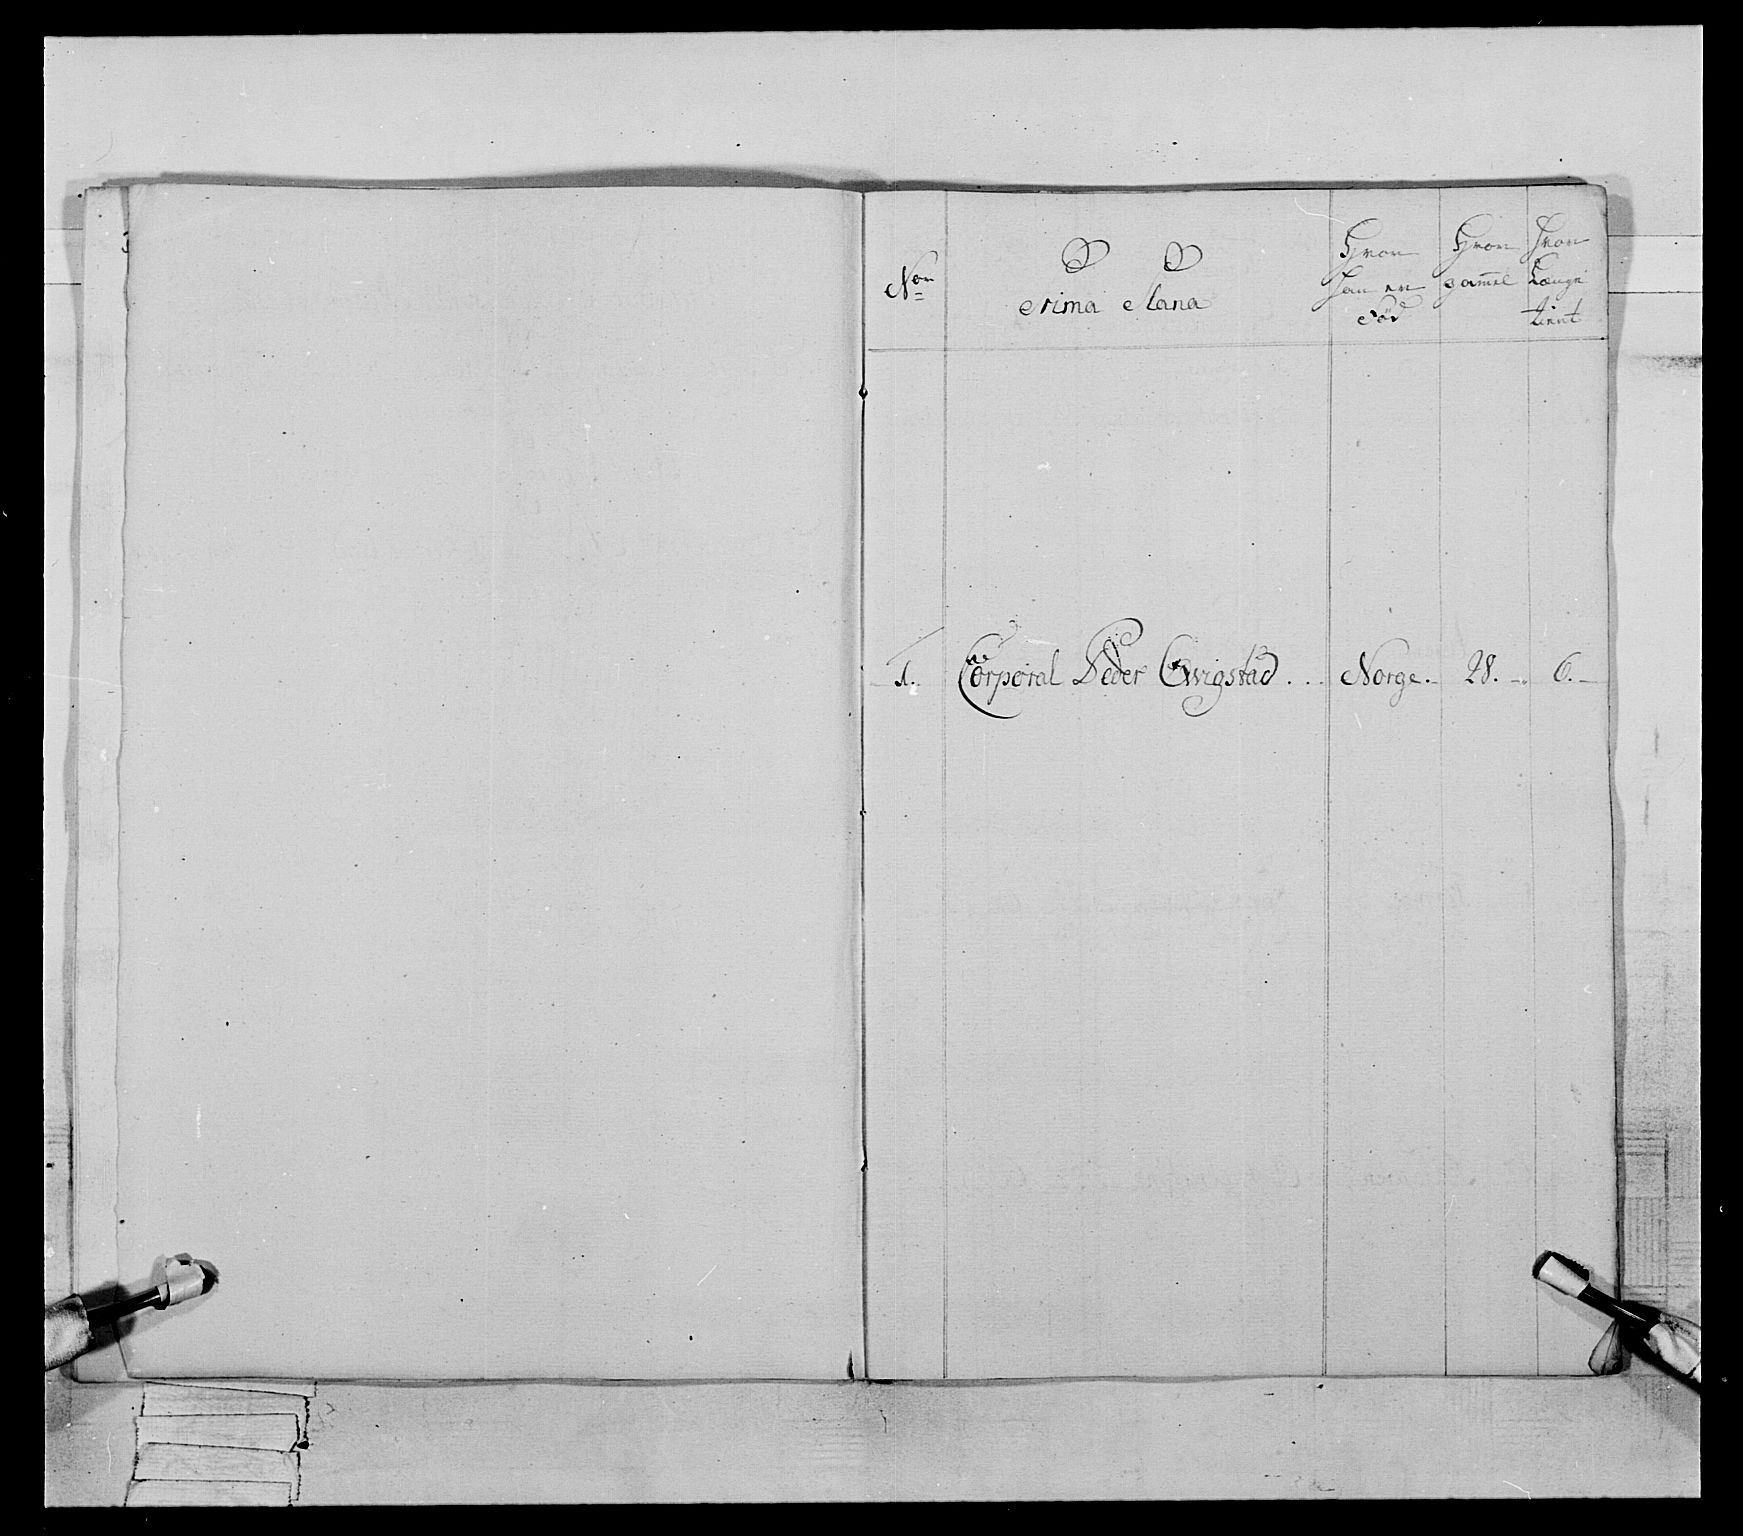 No
Prima Plana
Hvor
han er
Fød
Hvor
gammel
Hvor
Længe
tient
1. Corporal Peder Qvigstad . . Norge. 28. 6.